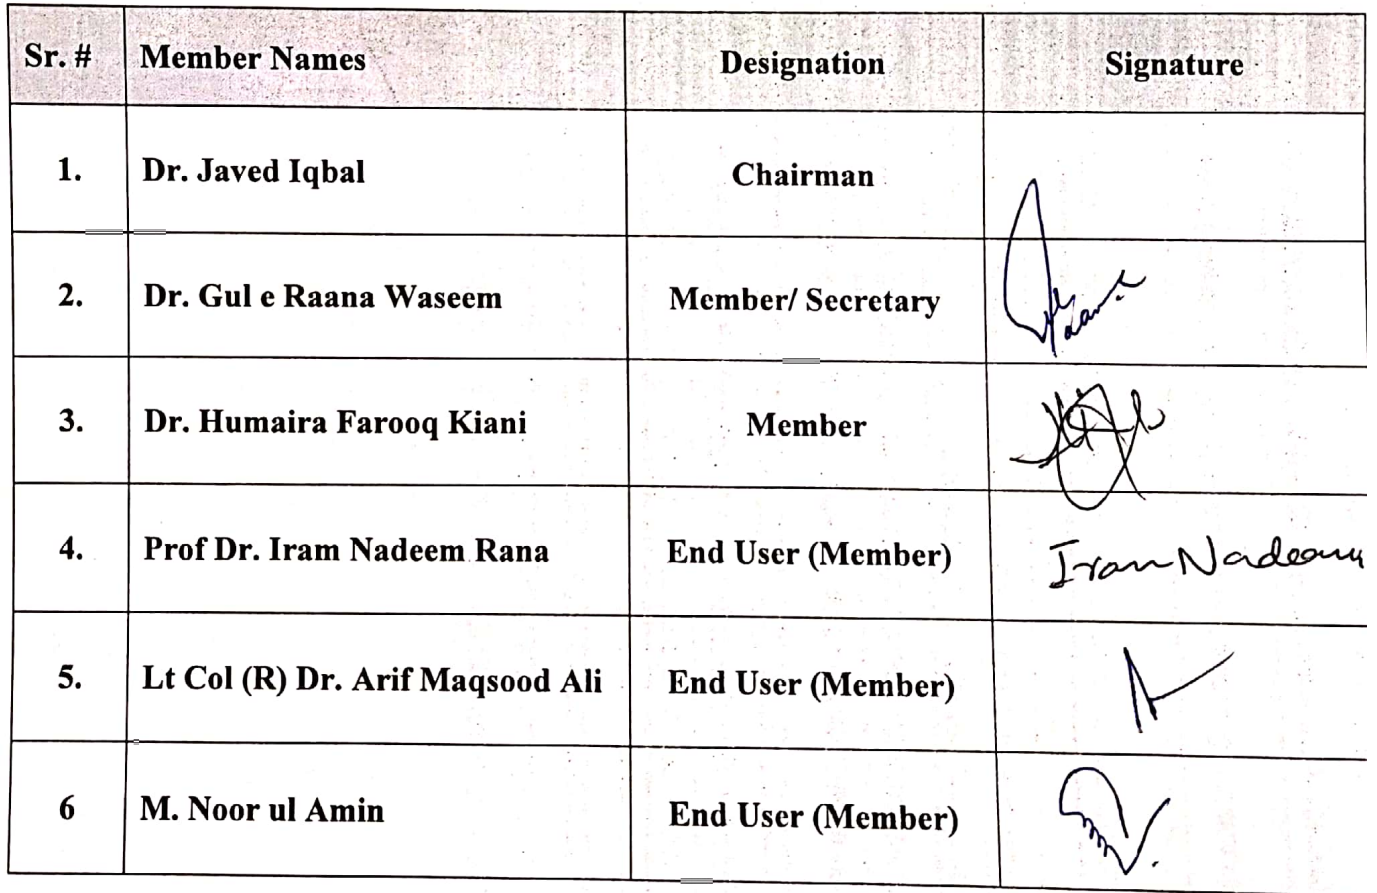 Sr. # Member Names Designation Signature
1. Dr. Javed Iqbal Chairman
2. Dr. Gul e Raana Waseem Member/ Secretary
3. Dr. Humaira Farooq Kiani Member
4. Prof Dr. Iram Nadeem Rana End User (Member) Iram Nadeem
5. Lt Col (R) Dr. Arif Maqsood Ali End User (Member)
6 M. Noor ul Amin End User (Member)